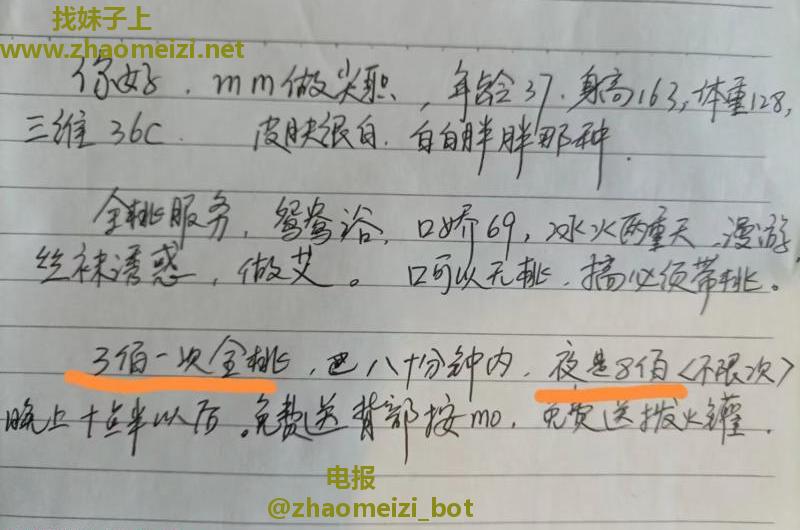 找妹子上
www.zhaomeizi.net
你好，mm做尖职，年龄37.身高163,体重128,
三维36C. 皮肤很白.白白胖胖那种.
全桃服务，鸳鸯浴，口娇69,冰火两重天,漫游
丝袜诱惑，做艾。口可以无桃,搞必须带桃。
3佰一次全桃，八十分钟内，夜是8佰<不限次>
晚上十点半以后。免费送背部按mo，免费送拨火罐.
电报
@zhaomeizi_bot